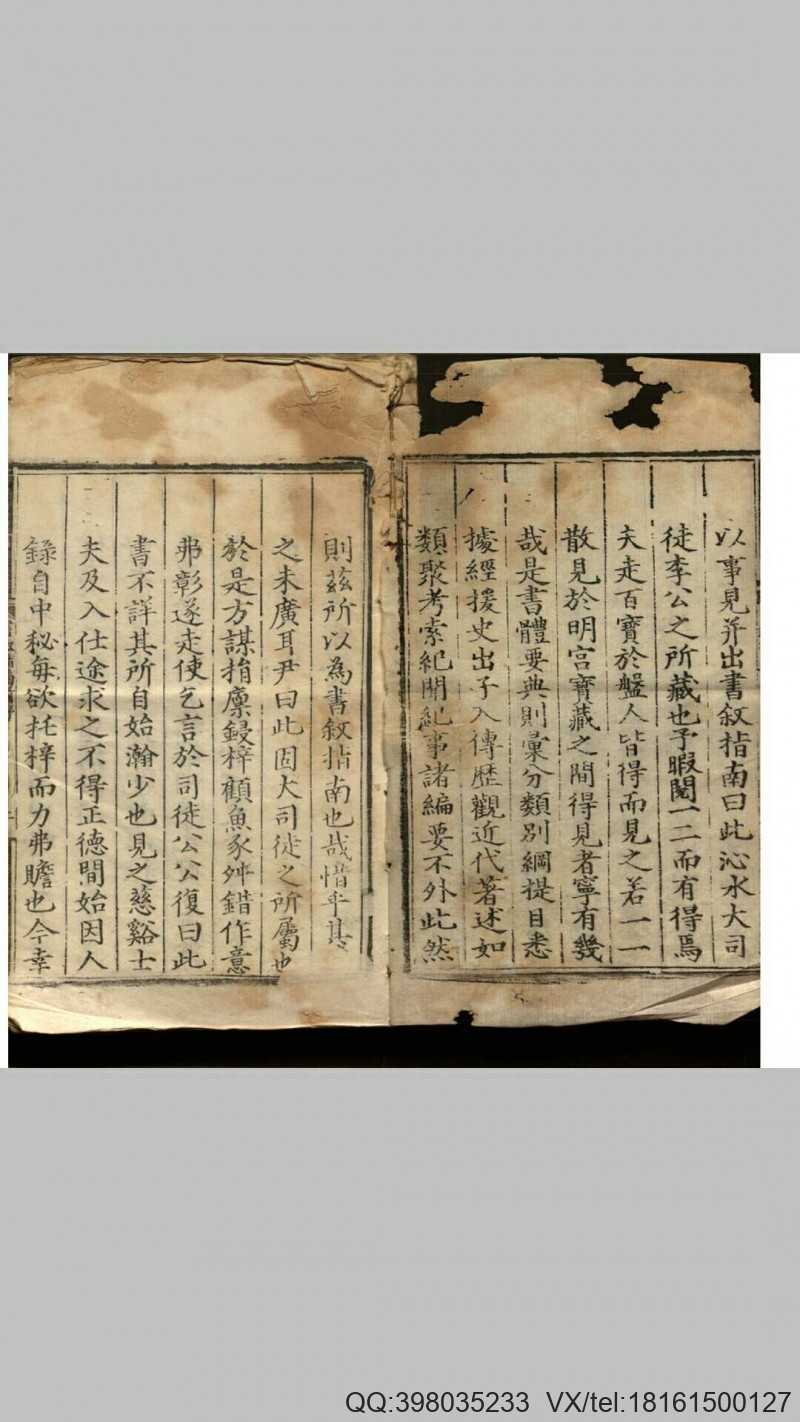 以事見并出書敘指南曰此沁水大司
徒李公之所藏也予暇閱一二而有得焉
夫走百寶於盤人皆得而見之若一一
散見於明宫寶藏之間得見者寧有幾
哉是書體要典則彙分類別綱提目悉
據經援史出子入傳歷觀近代著述如
類聚考索紀關紀事諸編要不外此然
則茲所以為書敘指南也哉惜乎其
之未廣耳尹曰此固大司徒之所屬也
於是方謀捐廩鋟梓顧魚豕舛錯作意
弗彰遂走使乞言於司徒公公復曰此
書不詳其所自始瀚少也見之慈谿士
夫及入仕途求之不得正德間始因人
錄自中秘每欲托梓而力弗贍也今幸
QQ:398035233 VX/tel:18161500127